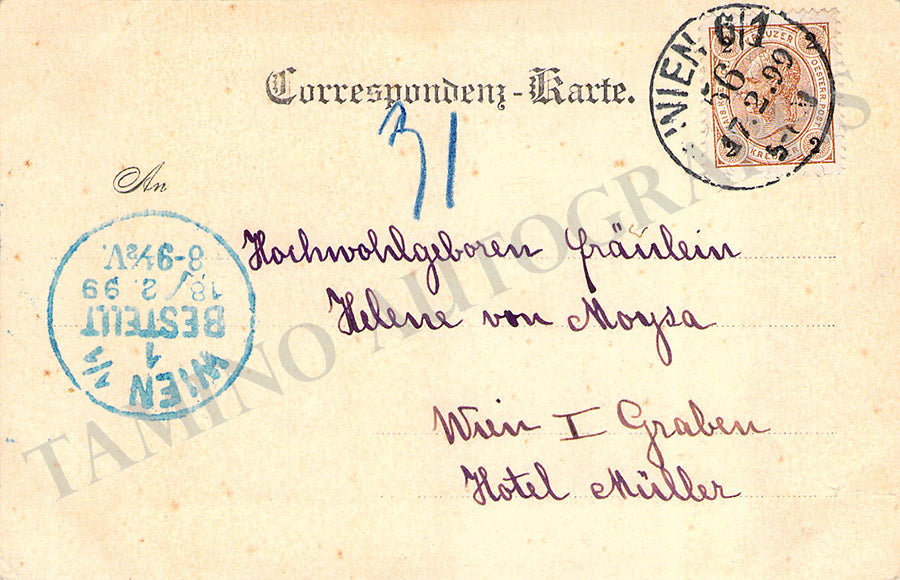 Correspondenz-Karte.
31
An
Hochwohlgeboren Fräulein
Helene von Moysa
Wien I Graben
Hotel Müller
WIEN 6/1
56
17.2.99
KREUZER
OESTERR. POST.
2
2
2
WIEN 1/1
1
BESTELLT
18/2.99
8-9½V.
TAMINO AUTOGRAPHS